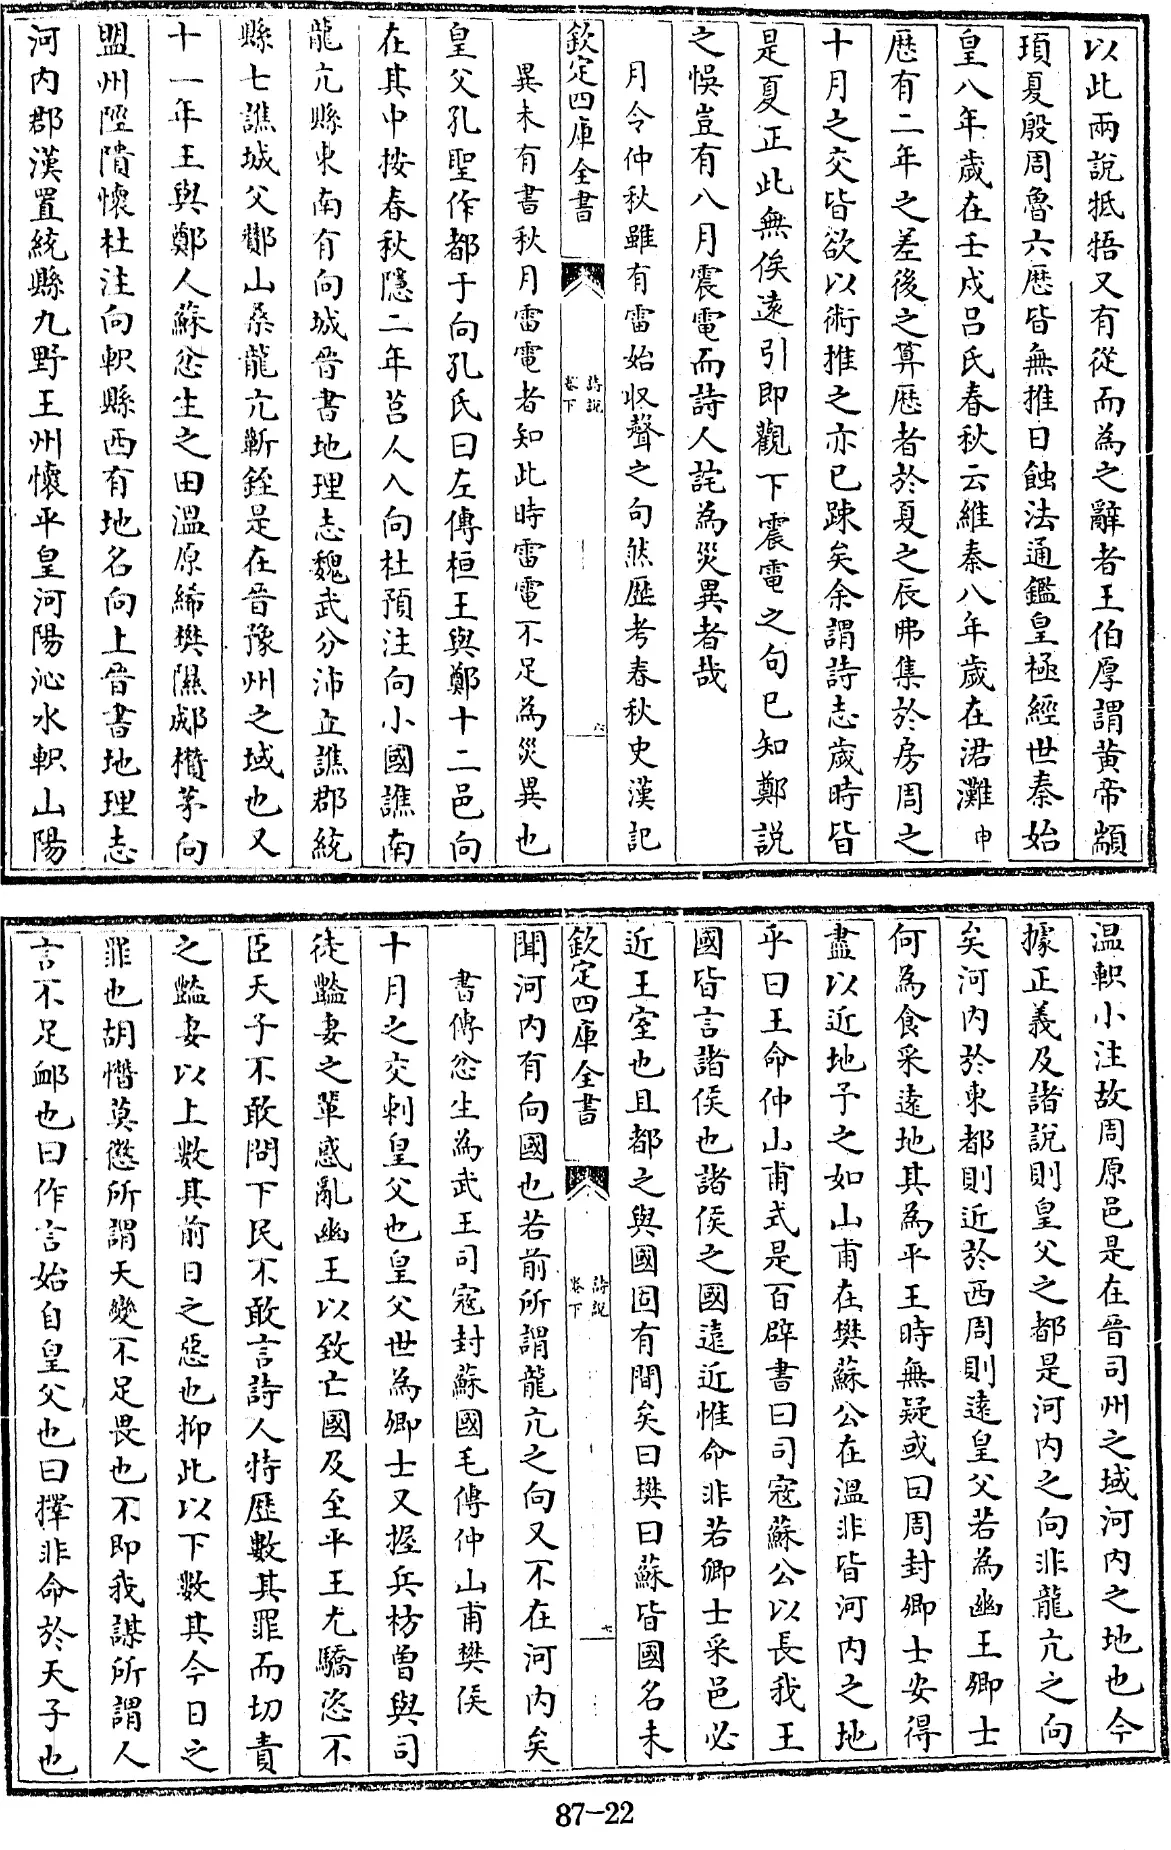 以此兩說抵牾又有從而為之辭者王伯厚謂黄帝顓
頊夏殷周魯六歴皆無推日蝕法通鑑皇極經世秦始
皇八年歲在壬戌吕氏春秋云維秦八年歲在涒灘申
歴有二年之差後之算歴者於夏之辰弗集於房周之
十月之交皆欲以術推之亦已踈矣余謂詩志歲時皆
是夏正此無俟遠引即觀下震電之句已知鄭說
之悞豈有八月震電而詩人詫為災異者哉
月令仲秋雖有雷始収聲之句然歴考春秋史漢記
欽定四庫全書
詩說
卷下
六
異未有書秋月雷電者知此時雷電不足為災異也
皇父孔聖作都于向孔氏曰左傳桓王與鄭十二邑向
在其中按春秋隱二年莒人入向杜預注向小國譙南
龍亢縣東南有向城晉書地理志魏武分沛立譙郡統
縣七譙城父酇山桑龍亢蘄銍是在晉豫州之域也又
十一年王與鄭人蘇忿生之田溫原絺樊隰郕欑茅向
盟州陘隤懷杜注向軹縣西有地名向上晉書地理志
河内郡漢置統縣九野王州懷平皇河陽沁水軹山陽
温軹小注故周原邑是在晉司州之域河内之地也今
據正義及諸說則皇父之都是河内之向非龍亢之向
矣河内於東都則近於西周則遠皇父若為幽王卿士
何為食采遠地其為平王時無疑或曰周封卿士安得
盡以近地予之如山甫在樊蘇公在溫非皆河内之地
乎曰王命仲山甫式是百辟書曰司寇蘇公以長我王
國皆言諸侯也諸侯之國遠近惟命非若卿士采邑必
近王室也且都之與國固有間矣曰樊曰蘇皆國名未
欽定四庫全書
詩說
卷下
七
聞河内有向國也若前所謂龍亢之向又不在河内矣
書傳忿生為武王司寇封蘇國毛傳仲山甫樊侯
十月之交刺皇父也皇父世為卿士又握兵枋曽與司
徒豔妻之輩惑亂幽王以致亡國及至平王尤驕恣不
臣天子不敢問下民不敢言詩人特歴數其罪而切責
之豔妻以上數其前日之惡也抑此以下數其今日之
罪也胡憯莫懲所謂天變不足畏也不即我謀所謂人
言不足卹也曰作言始自皇父也曰擇非命於天子也
87-22